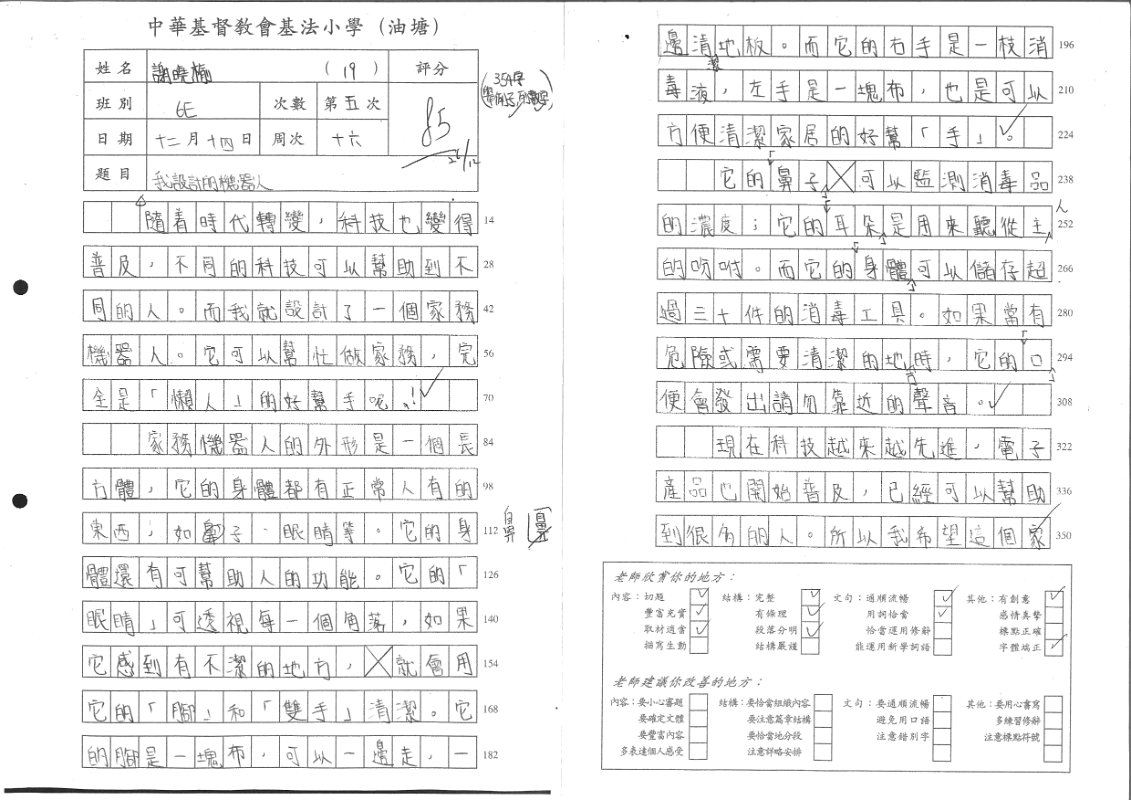 中華基督教會基法小學（油塘）
姓名 謝曉楠 （19） 評分
班別 6E 次數 第五次 85
日期 十二月十四日 周次 十六 21/12
題目 我設計的機器人
隨着時代轉變，科技也變得 14
普及，不同的科技可以幫助到不 28
同的人。而我就設計了一個家務 42
機器人。它可以幫忙做家務，完 56
全是「懶人」的好幫手呢！ 70
家務機器人的外形是一個長 84
方體，它的身體都有正常人有的 98
東西，如鼻子、眼睛等。它的身 112 鼻
體還有可幫助人的功能。它的「 126
眼睛」可透視每一個角落，如果 140
它感到有不潔的地方，就會用 154
它的「腳」和「雙手」清潔。它 168
的腳是一塊布，可以一邊走，一 182
邊清潔地板。而它的右手是一枝消 196
毒液，左手是一塊布，也是可以 210
方便清潔家居的好幫「手」。 224
它的「鼻子」可以監測消毒品 238
的濃度；它的「耳朵」是用來聽從主人 252
的吩咐。而它的「身體」可以儲存超 266
過三十件的消毒工具。如果當有 280
危險或需要清潔的地方時，它的「口」 294
便會發出請勿靠近的聲音。 308
現在科技越來越先進，電子 322
產品也開始普及，已經可以幫助 336
到很多的人。所以我希望這個家 350
老師欣賞你的地方：
內容：切題 結構：完整 文句：通順流暢 其他：有創意
豐富充實 有條理 用詞恰當 感情真摯
取材適當 段落分明 恰當運用修辭 標點正確
描寫生動 結構嚴謹 能運用新學詞語 字體端正
老師建議你改善的地方：
內容：要小心審題 結構：要恰當組織內容 文句：要通順流暢 其他：要用心書寫
要確定文體 要注意篇章結構 避免用口語 多練習修辭
要豐富內容 要恰當地分段 注意錯別字 注意標點符號
多表達個人感受 注意詳略安排